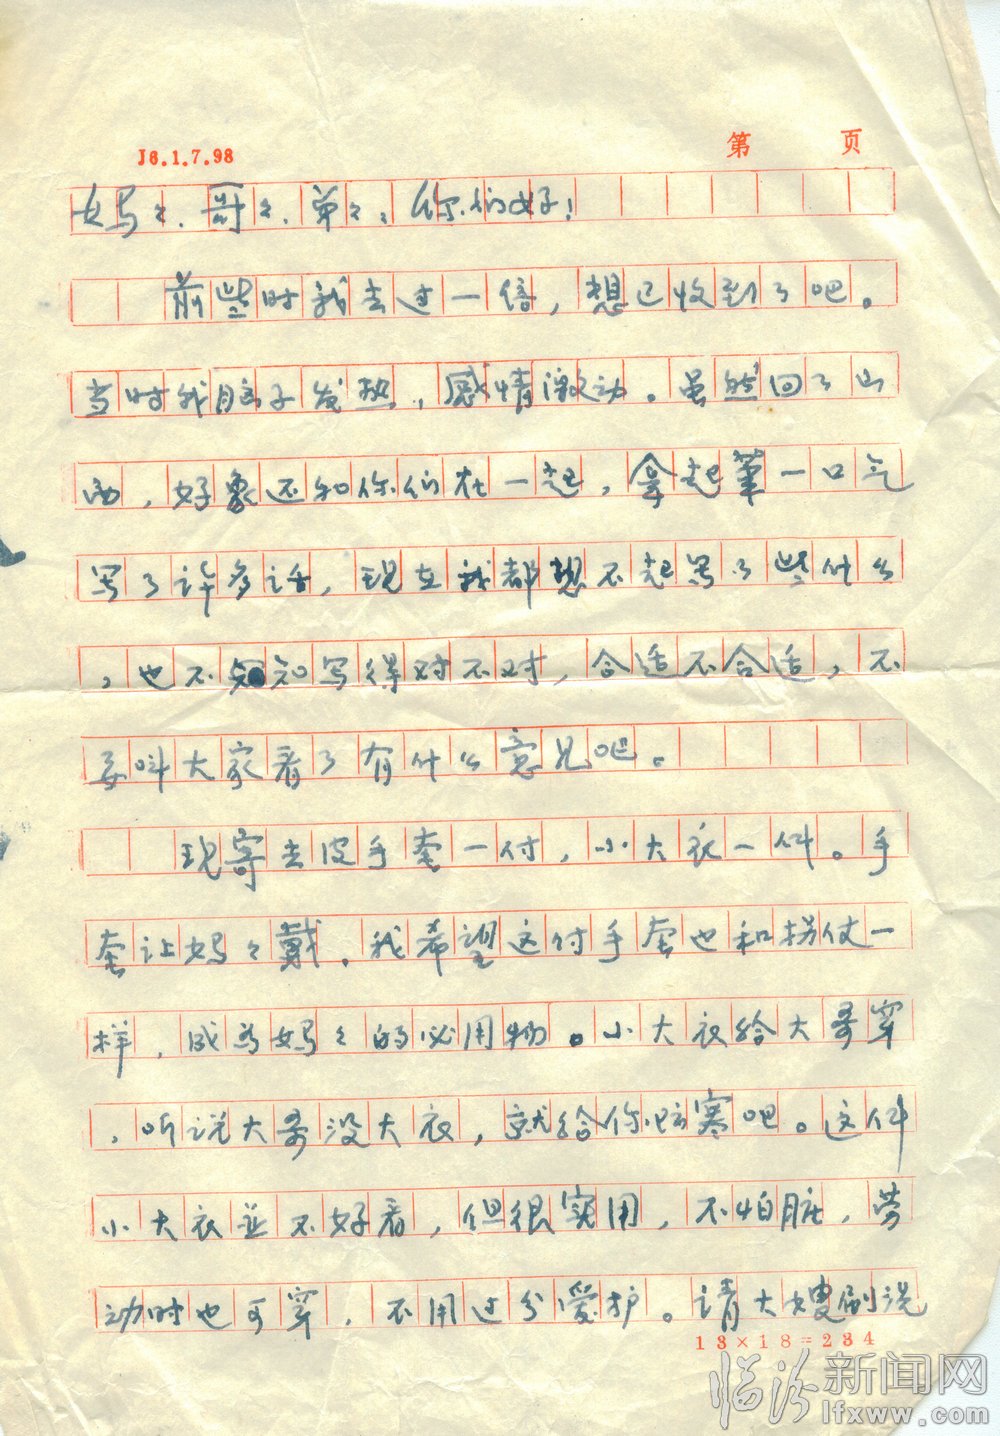 J6.1.7.98
第 页
妈々、哥々、弟々：你们好！
前些时我去过一信，想已收到了吧。
当时我脑子发热，感情激动。虽然回了山
西，好象还和你们在一起，拿起笔一口气
写了许多话，现在我都想不起写了些什么
，也不知写得对不对，合适不合适，不
要叫大家看了有什么意见吧。
现寄去皮手套一付，小大衣一件。手
套让妈々戴，我希望这付手套也和拐仗一
样，成为妈々的必用物。小大衣给大哥穿
，听说大哥没大衣，就给你防寒吧。这件
小大衣并不好看，但很实用，不怕脏，劳
动时也可穿，不用过分爱护。请大嫂别说
13×18=234
临汾新闻网
lfxww.com